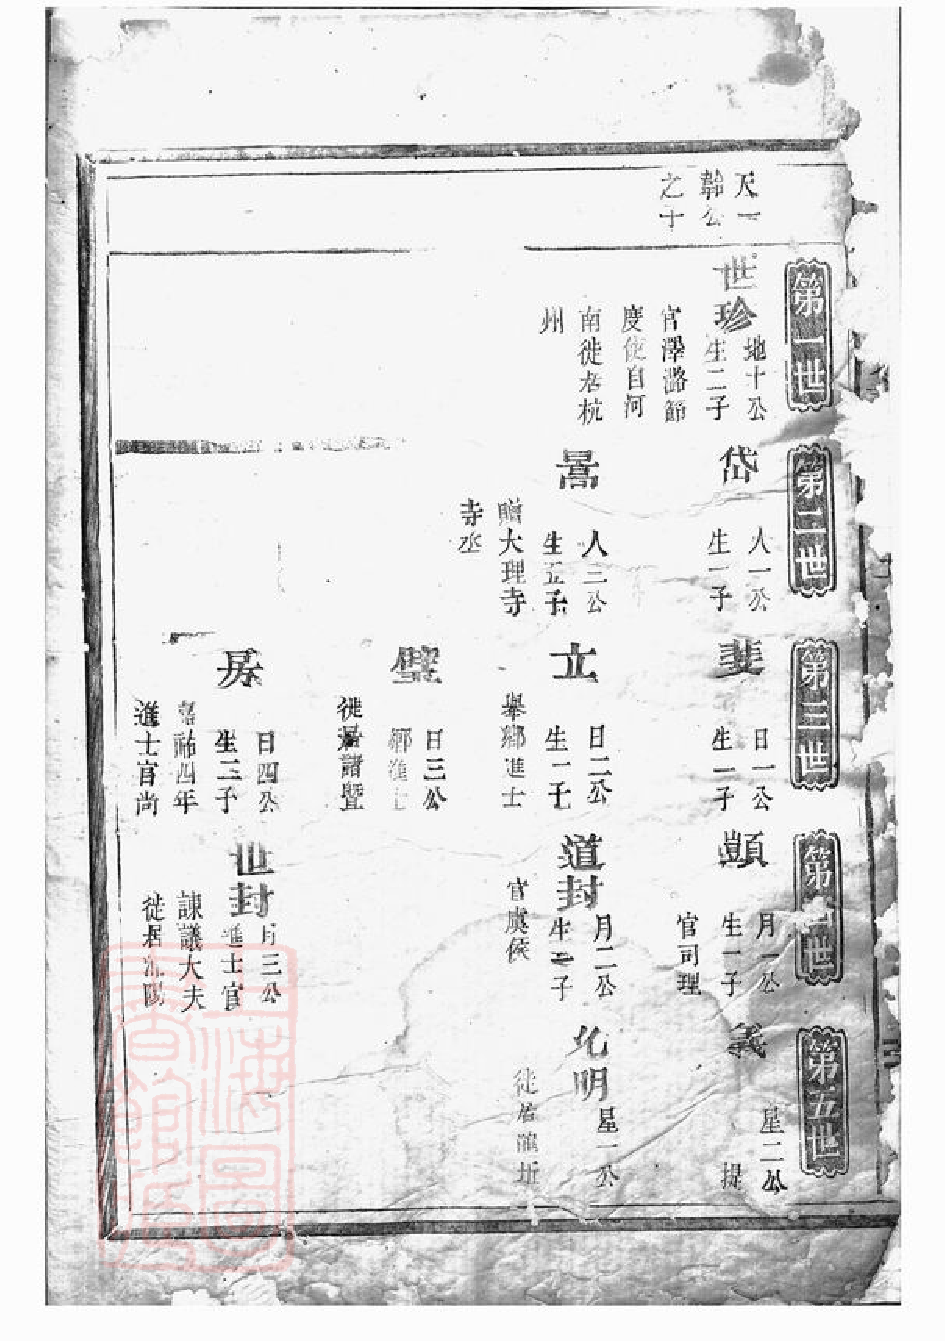 天一
韓公
之十
第一世
世珍
地十公
生二子
官澤潞節
度使自河
南徙居杭
州
第二世
岱
人一公
生一子
暠
人二公
生五子
贈大理寺
寺丞
第三世
斐
日一公
生一子
立
日二公
生一子
舉鄉進士
壁
日三公
鄉進士
徙居諸暨
房
日四公
生二子
嘉祐四年
進士官尚
第四世
顗
月一公
生一子
官司理
道封
月二公
生二子
官虞候
世封
月三公
進士官
諫議大夫
徙居
第五世
義
星二公
提
化明
星一公
徙居漁圻